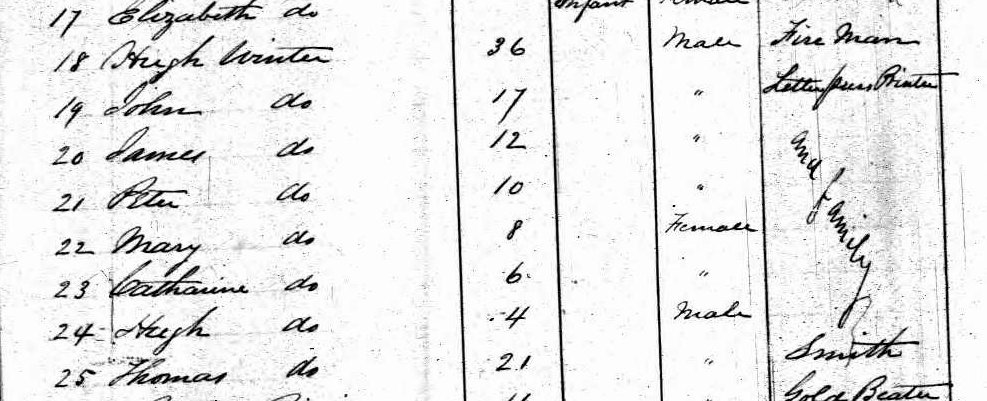 17 Elizabeth do Infant Female
18 Hugh Winter 36 Male Fire Man
19 John do 17 " Letterpress Printer
20 James do 12 " and Family
21 Peter do 10 "
22 Mary do 8 Female
23 Catharine do 6 "
24 Hugh do 4 Male
25 Thomas do 21 " Smith
Gold Beater